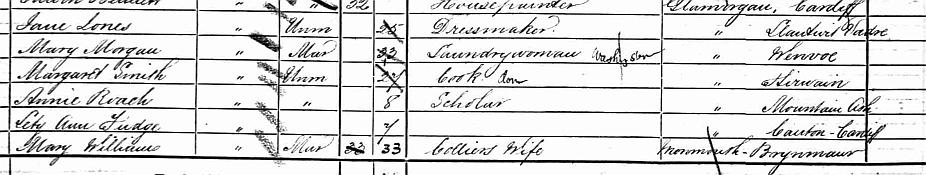 32 Housepainter Glamorgan, Cardiff
Jane Jones " Unm 25 Dressmaker. " Llantwit Vadre
Mary Morgan " Mar 32 Laundrywoman Wash " Wenvoe
Margaret Smith " Unm 27 Cook Dom " Hirwain
Annie Roach " " 8 Scholar " Mountain Ash
Letty Ann Fudge " 4 " Canton - Cardiff
Mary Williams " Mar 33 33 Colliers Wife Monmouth - Brynmawr